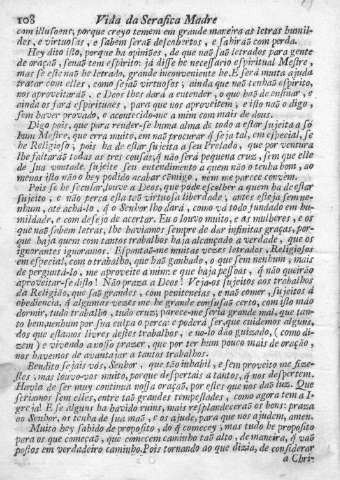 108 Vida da Serafica Madre
com illusoens, porque creyo temem em grande maneira as letras humil-
des, e virtuosas, e sabem seraõ descubertos, e sahiraõ com perda.
Hey dito isto, porque ha opinioes, de que naõ saõ letrados para gente
de oraçaõ, senaõ tem espirito: já disse he necessario espiritual Mestre,
mas se este naõ he letrado, grande inconveniente he. E será muita ajuda
tratar com elles, como sejaõ virtuosos; ainda que naõ tenhaõ espirito,
nos aproveitaráõ. e Deos lhes dará a entender, o que haõ de ensinar, e
ainda os fará espirituaes, para que nos aproveitem, e isto naõ o digo,
sem haver provado, e acontecido-me a mim com mais de dous.
Digo pois, que para render-se huma alma de todo a estar sujeita a só
hum Mestre, que erra muito, em naõ procurar q̃ seja tal, em especial, se
he Religioso, pois ha de estar sujeita a seu Prelado, que por ventura
lhe faltaráõ todas as tres cousas, q̃ naõ será pequena cruz, sem que elle
de sua vontade, sujeite seu entendimento a quem naõ o tenha bom, ao
menos isto naõ o hey podido acabar comigo, nem me parece convem.
Pois se he secular, louve a Deos, que póde escolher a quem ha de estar
sujeito, e naõ perca esta taõ virtuosa liberdade, antes esteja sem ne-
nhum, até achá-lo, q̃ o Senhor lho dará, como vá todo fundado em hu-
mildade, e com desejo de acertar. Eu o louvo muito, e as mulheres, e os
que naõ sabem letras, lhe haviamos sempre de dar infinitas graças, por-
que haja quem com tantos trabalhos haja alcançado a verdade, que os
ignorantes ignoramos. Espantaõ-me muitas vezes letrados, Religiosos
em especial, com o trabalho, que haõ ganhado, o que sem nenhum, mais
de perguntá-lo, me aproveite a mim: e que haja pessoas, q̃ naõ queiraõ
aproveitar-se disto! Naõ praza a Deos! Vejo-os sujeitos aos trabalhos
da Religiaõ, que saõ grandes, com penitencias, e mao comer, sujeitos á
obediencia, q̃ algumas vezes me he grande confusaõ certo, com isto mao
dormir, tudo trabalho, tudo cruz; parece-me seria grande mal, que tan-
to bem, nenhum por sua culpa o perca: e poderá ser que cuidemos alguns,
dos que estamos livres destes trabalhos, e no-lo daõ guizado, (como di-
zem) e vivendo a nosso prazer, que por ter hum pouco mais de oraçaõ,
nos havemos de avantajar a tantos trabalhos.
Bendito sejais vós, Senhor, que taõ inhabil, e sem proveito me fizes-
tes; mas louvo-vos muito, porque despertais a tantos, q̃ nos despertem.
Havia de ser muy continua nossa oraçaõ, por estes que nos daõ luz. Que
seriamos sem elles, entre taõ grandes tempestades, como agora tem a I-
greja? E se alguns ha havido ruins, mais resplandeceráõ os bons: praza
ao Senhor, os tenha de sua maõ, e os ajude, para que nos ajudem, amen.
Muito hey sahido do proposito, do q̃ comecey; mas tudo he proposito
para os que começaõ, que comecem caminho taõ alto, de maneira, q̃ vaõ
postos em verdadeiro caminho. Pois tornando ao que dizia, de considerar
a Chri-